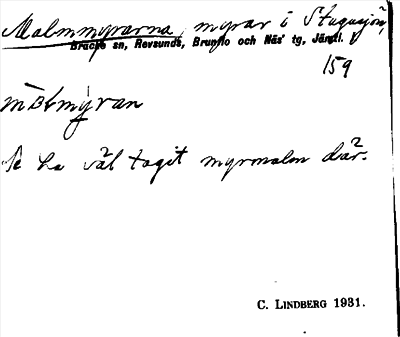 Malmmyrarna, myrar i Stugusjön,
Bräcke sn, Revsunds, Brunflo och Näs' tg, Jämtl. l.
159
De ha väl tagit myrmalm där.
C. LINDBERG 1931.